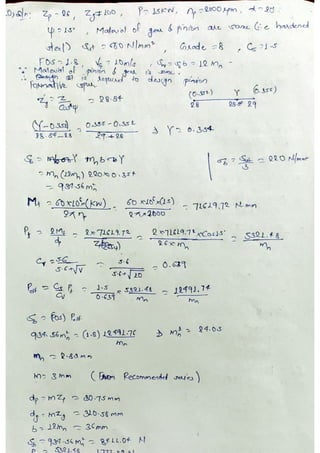 Zp = 26, Zg = 100, P = 15KW, np = 2000 rpm, α = 20°
ψ = 15°, Material of gear & pinion are same (i.e hardened
steel) Sut = 660 N/mm², Grade = 8, Cs = 1.5
FOS = 1.8, V = 10m/s, b = 12mn
∵ Material of pinion & gear is same.
is required to design pinion
Formative
Z'p = Z / cos³ψ = 28.84
(0.352) Y (0.355)
28 29
(Y-0.352) / 28.84-28 = 0.355-0.352 / 29-28 ⇒ Y = 0.354
Sb = mn b σb Y
σb = Sut / 3 = 220 N/mm²
= mn (12mn) 220 × 0.354
= 934.56 mn²
Mt = 60×10⁶ (KW) / 2πn = 60×10⁶ (15) / 2π×2000 = 71619.72 N.mm
Pt = 2Mt / dp = 2×71619.72 / = 2×71619.72×cos15° / 26×mn = 5321.48 / mn
Cv = 5.6 / 5.6+√V = 5.6 / 5.6+√10 = 0.639
Peff = Cs / Cv Pt = 1.5 / 0.639 × 5321.48 / mn = 12491.74 / mn
Sb = (FOS) Peff
934.56 mn² = (1.8) 12491.76 / mn ⇒ mn³ = 24.05
mn = 2.89 mm
m = 3 mm (From Recommended series)
dp = mZp = 80.75 mm
dg = mZg = 310.58 mm
b = 12mn = 36mm
Sb = 934.56 mn² = 8411.04 N